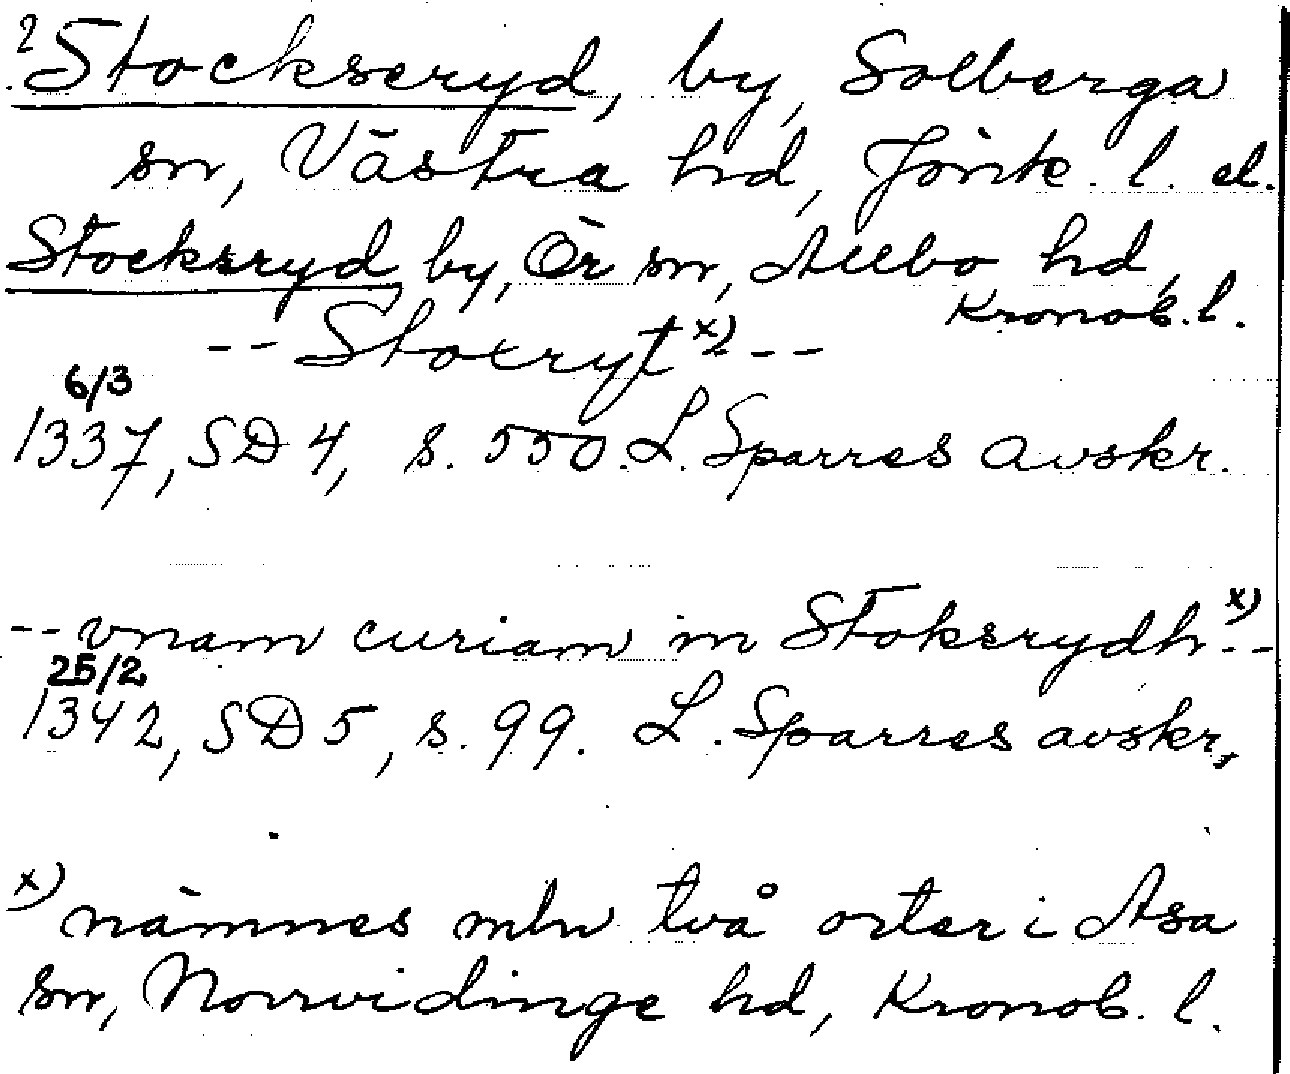 ? Stockseryd, by, Solberga
sn, Västra hd, Jönk. l. el.
Stocksryd by, Ör sn, Allbo hd,
Kronob. l.
-- Stocryt x) --
6/3
1337, SD 4, s. 550. L. Sparres avskr.
-- vnam curiam in Stoksrydh x) --
25/2
1342, SD 5, s. 99. L. Sparres avskr.
x) nämnes mln två orter i Asa
sn, Norrvidinge hd, Kronob. l.